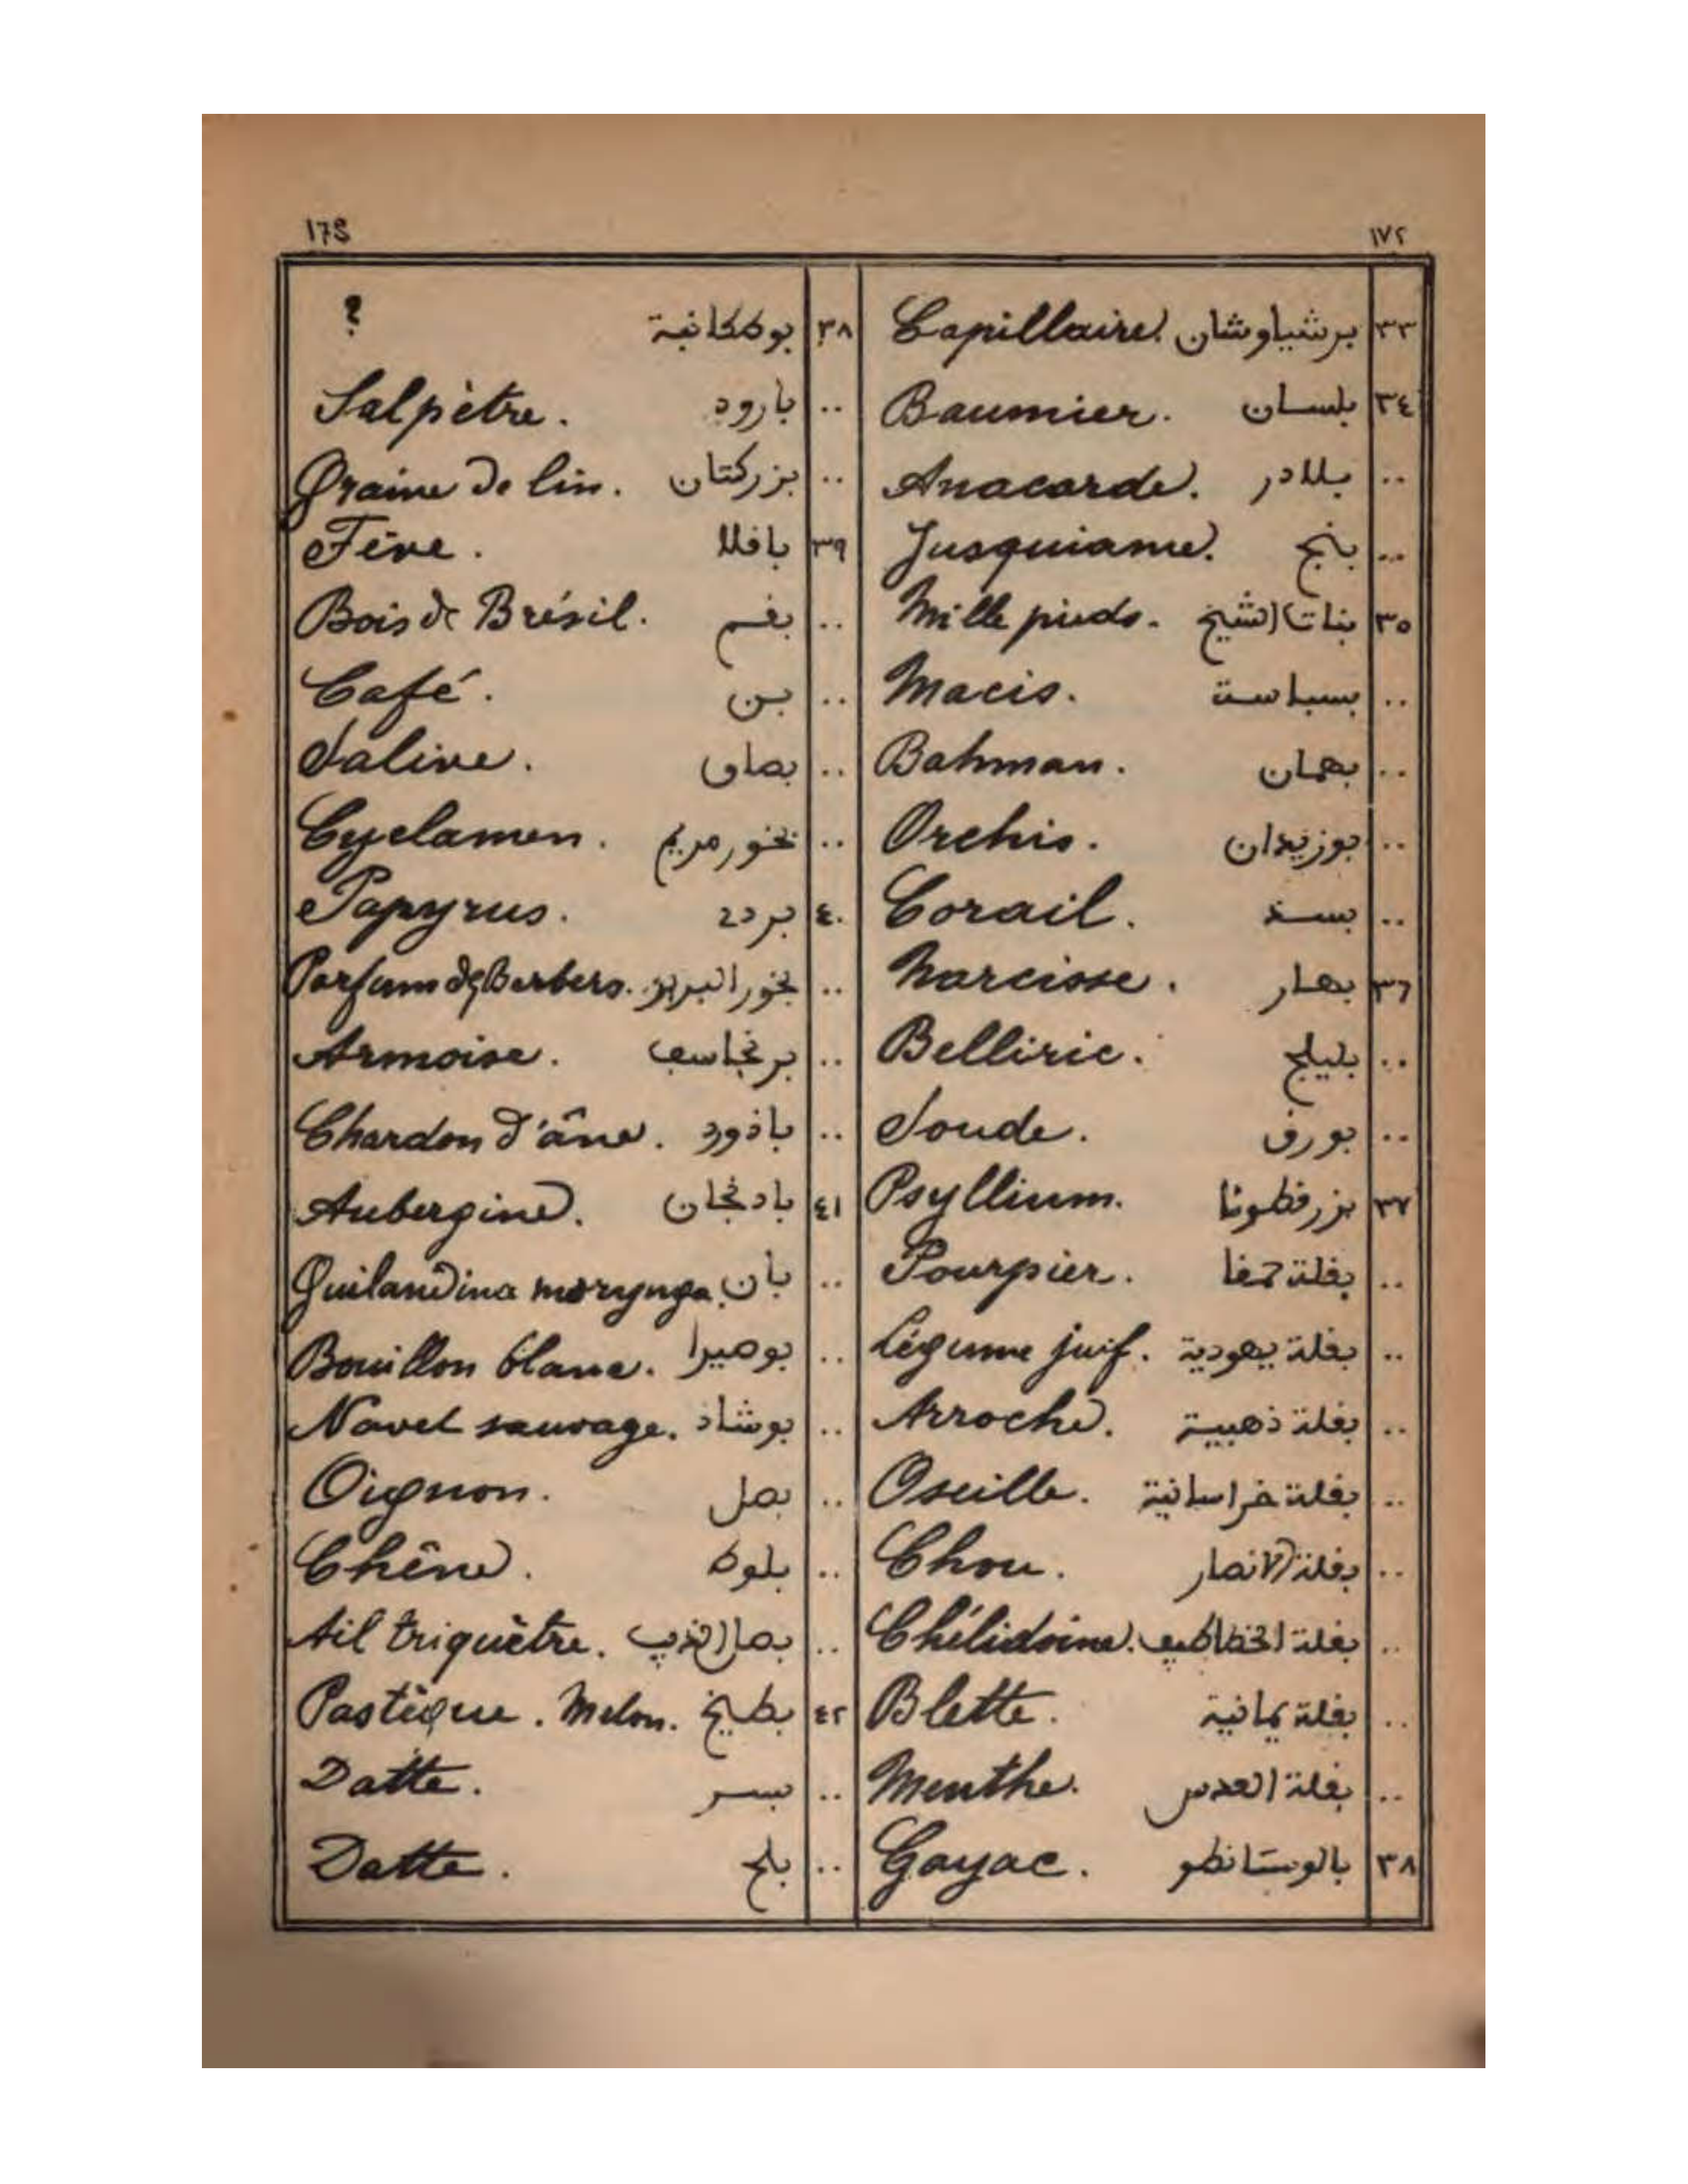 ١٧٢ 173
٣٣ برشياوشان Capillaire.
٣٤ بلسان Baumier.
.. بلادر Anacarde.
.. بنج Jusquiame.
٣٥ بنات الشيخ Mille pieds.
.. بسباسة Macis.
.. بهمان Bahman.
.. بوزيدان Orchis.
.. بسذ Corail.
٣٦ بهار Narcisse.
.. بليلج Belliric.
.. بورق Soude.
٣٧ بزرقطونا Psyllium.
.. بقلة حمقا Pourpier.
.. بقلة يهودية Légume juif.
.. بقلة ذهبية Arroche.
.. بقلة خراسانية Oseille.
.. بقلة الانصار Chou.
.. بقلة الخطاطيف Chélidoine.
.. بقلة يمانية Blette.
.. بقلة العدس Menthe.
٣٨ بالوسانطو Gayac.
٣٨ ?
.. بارود Salpètre.
.. بزركتان Graine de lin.
٣٩ باقلا Fève.
.. بقم Bois de Brésil.
.. بن Café.
.. بصاق Salive.
.. بخور مريم Cyclamen.
٤٠ بردي Papyrus.
.. بخور البربر Parfum des Berbers.
.. برنجاسف Armoise.
.. باذورد Chardon d'âne.
٤١ بادنجان Aubergine.
.. بان Guilandina morynga.
.. بوصيرا Bouillon blanc.
.. بوشاد Navet sauvage.
.. بصل Oignon.
.. بلوط Chêne.
.. بصل الذيب Ail triquètre.
٤٢ بطيخ Pastèque. Melon.
.. بسر Datte.
.. بلح Datte.